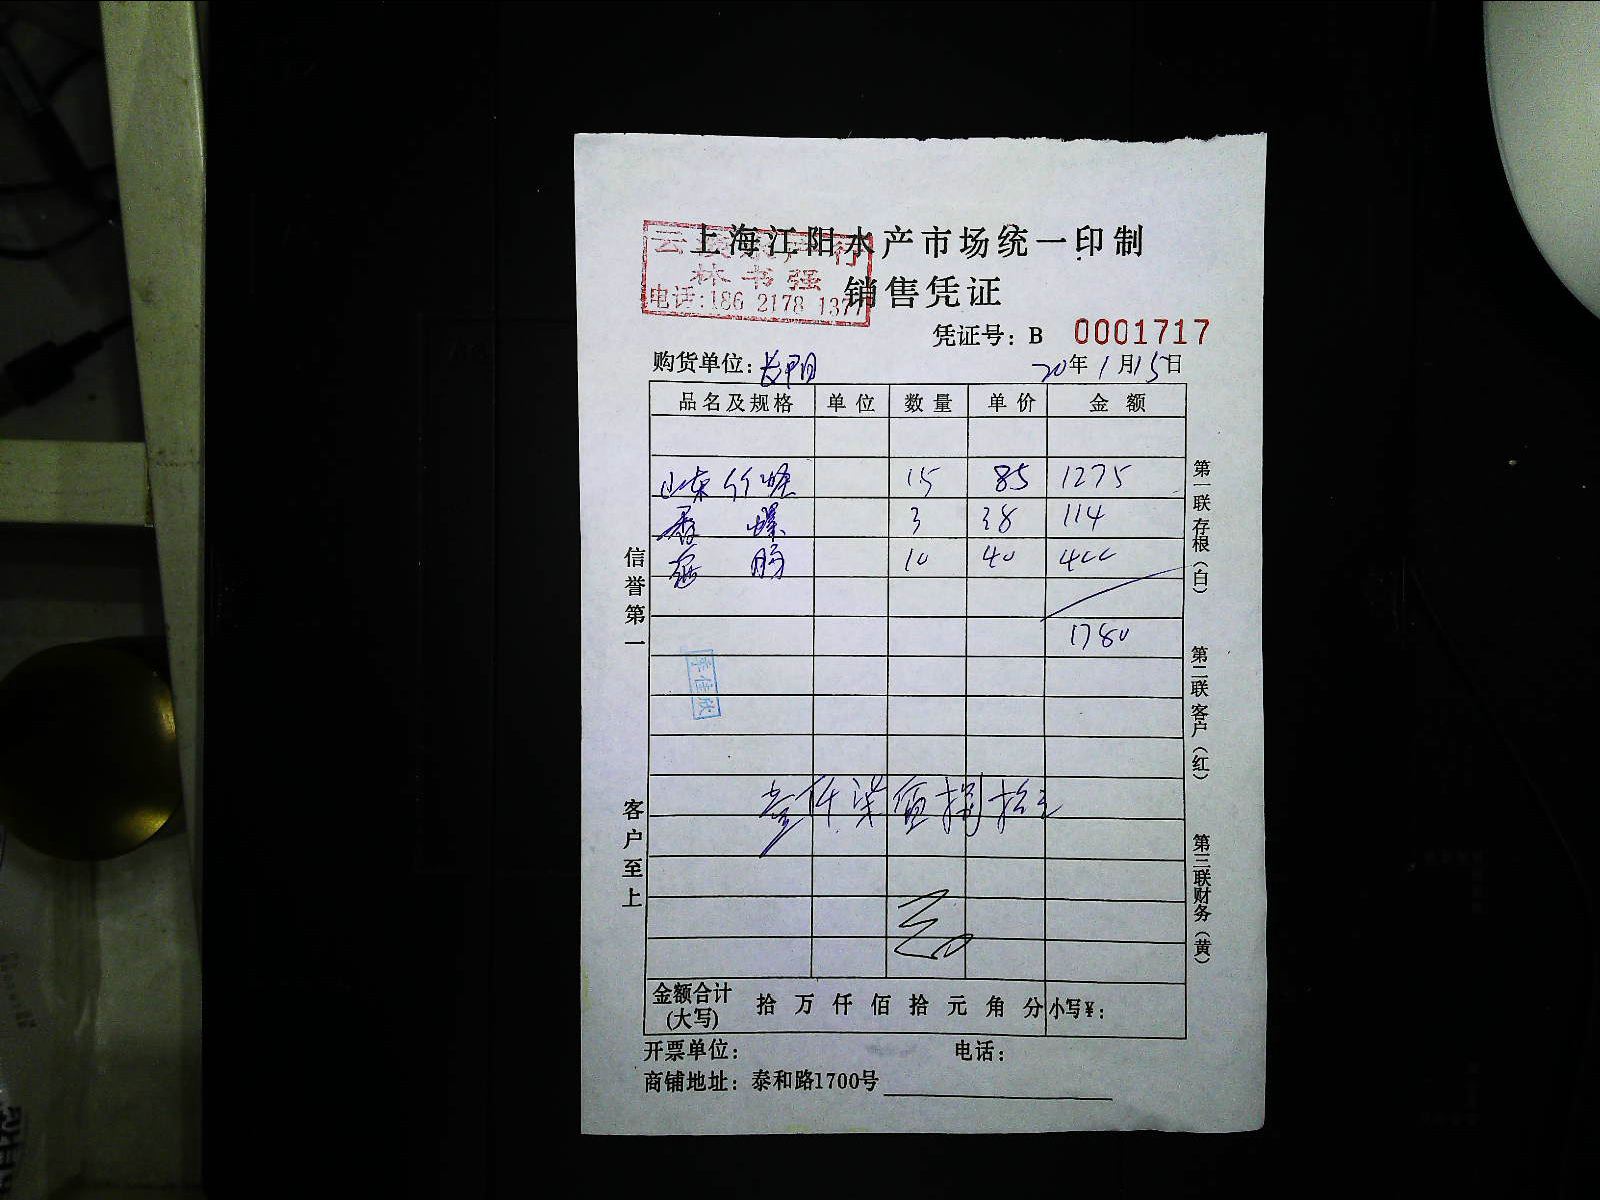 上海江阳水产市场统一印制
林书强
电话:186 2178 1377
销售凭证
凭证号: B 0001717
购货单位: 长阳 20年1月15日
品名及规格 单位 数量 单价 金额
山东竹蛏 15 85 1275
香螺 3 38 114
10 40 400
1780
李佳欣
壹仟柒佰捌拾元
金额合计(大写) 拾 万 仟 佰 拾 元 角 分 小写¥:
开票单位: 电话:
商铺地址: 泰和路1700号
信誉第一
客户至上
第一联存根(白)
第二联客户(红)
第三联财务(黄)